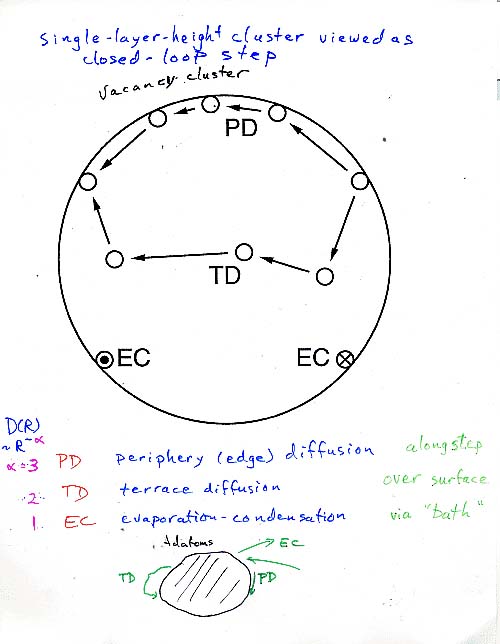 Single-layer-height cluster viewed as
closed-loop step
Vacancy cluster
PD
TD
EC EC
D(R)
~ R^-α
α=3 PD periphery (edge) diffusion along step
2 TD terrace diffusion over surface
1 EC evaporation-condensation via "bath"
Adatoms
EC
TD PD